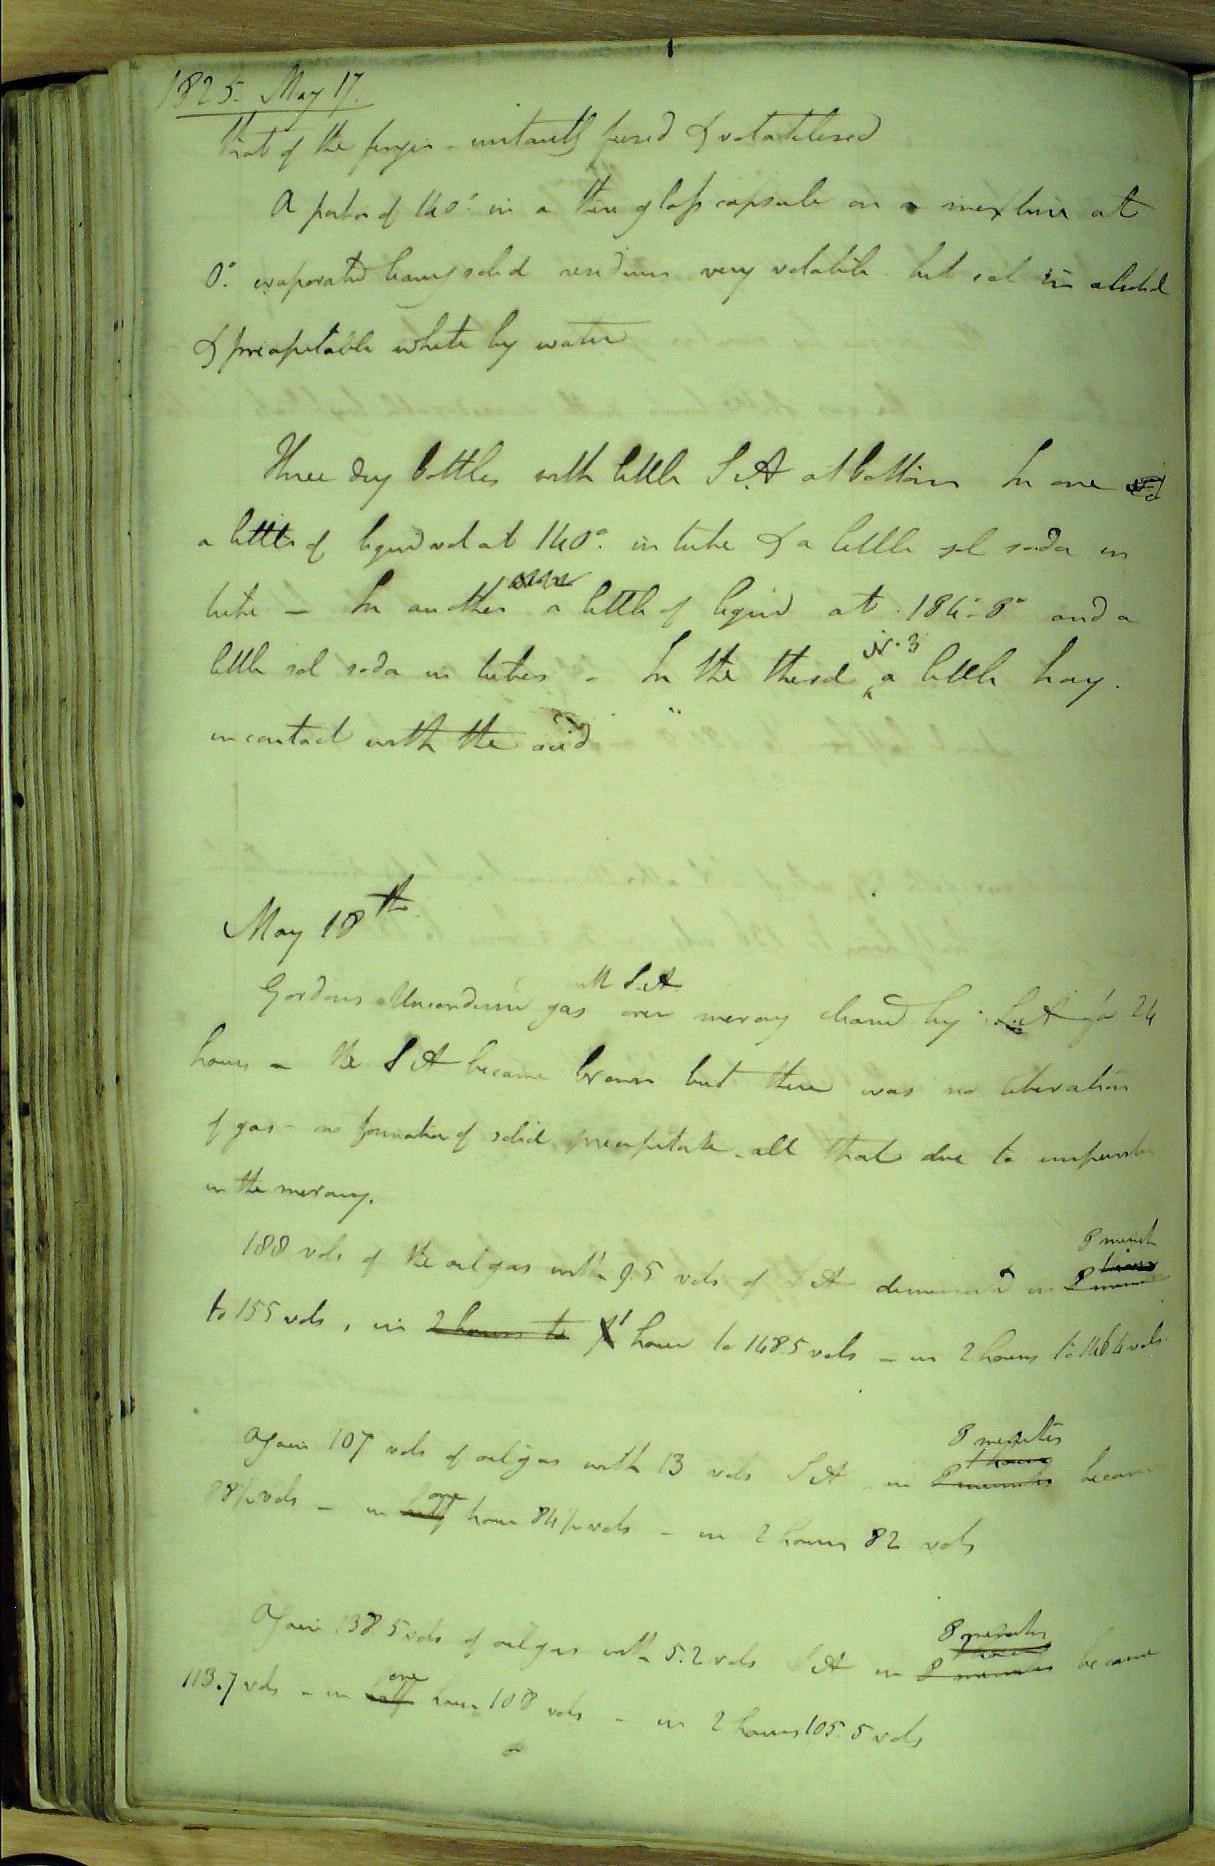 1825. May 17.
that of the finger - instantly fused & volatilised
A portion of 140° in a thin glass capsule on a mixture at
0° evaporated leaving solid residuum very volatile but sol in alcohol
& precipitable white by water
Three dry bottles with little S.A at bottom In one
a little of liquid vol at 140° in tube & a little sol soda in
tube - In another a little of liquid at 186°.8° and a
little sol soda in tubes - In the third a little hay.
in contact with the acid
May 18th
with S.A.
Gordons Uncondensd gas over mercury cleaned by S.A for 24
hours - the S A became brown but there was no liberation
of gas - no formation of solid precipitate all that due to impurities
in the mercury.
8 minutes
188 vols of the oil gas with 9.5 vols of S A diminished in
to 155 vols, in 2 hours to 1 hour to 148.5 vols - in 2 hours to 146.4 vols.
8 minutes
1 hour
Again 107 vols of oil gas with 13 vols S A in 8 minutes became
one
88½ vols - in half hour 84½ vols - in 2 hours 82 vols
8 minutes
1 hour
Again 138.5 vols of oil gas with 5.2 vols S A in 8 minutes became
one
113.7 vols - in half hour 108 vols - in 2 hours 105.5 vols